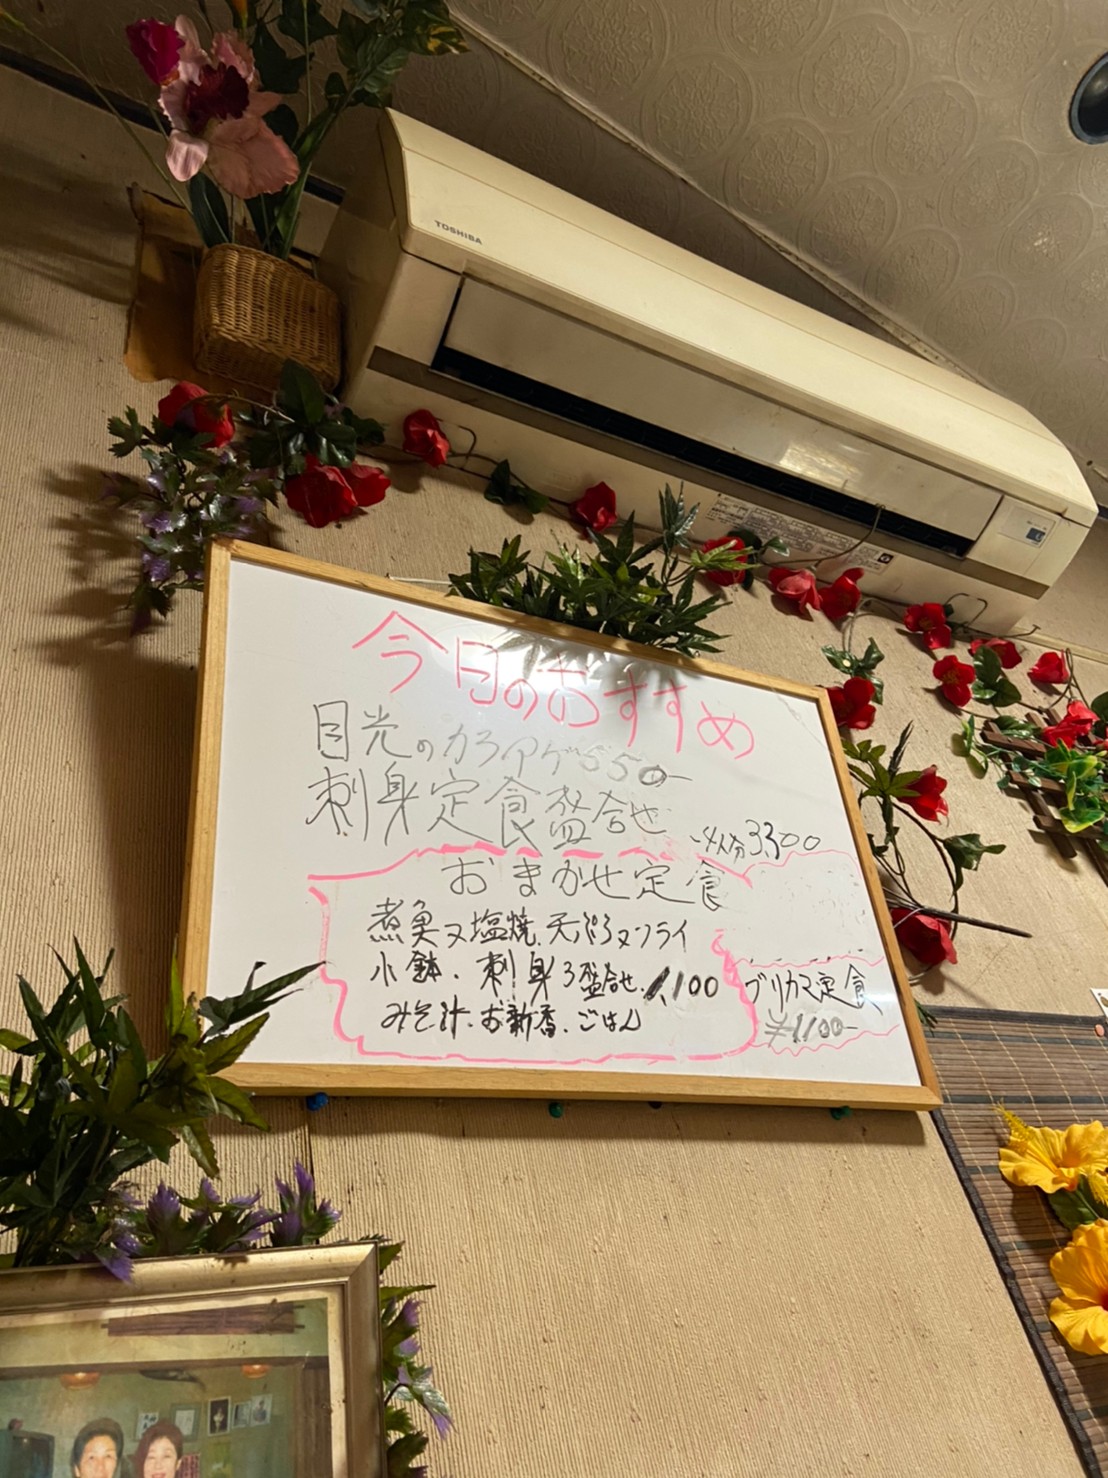 TOSHIBA
今日のおすすめ
目光のカラアゲ550-
刺身定食盛合せ 4人分3,300
おまかせ定食
煮魚又塩焼.天ぷら又フライ
小鉢.刺身3盛合せ.1,100
みそ汁.お新香.ごはん
ブリカマ定食
¥1,100-